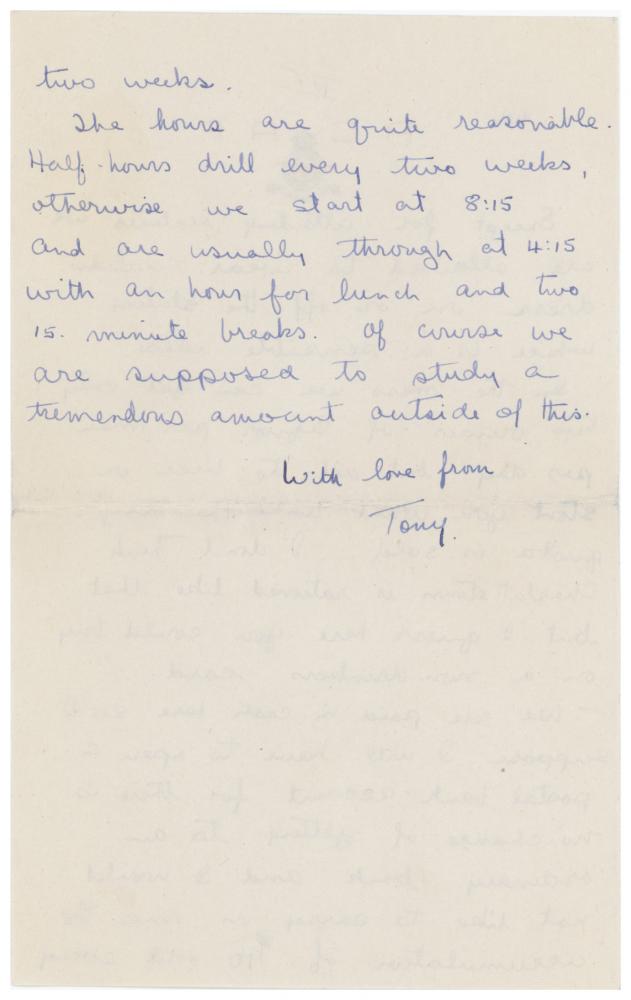 two weeks.
The hours are quite reasonable.
Half-hours drill every two weeks,
otherwise we start at 8:15
and are usually through at 4:15
with an hour for lunch and two
15. minute breaks. Of course we
are supposed to study a
tremendous amount outside of this.
With love from
Tony.